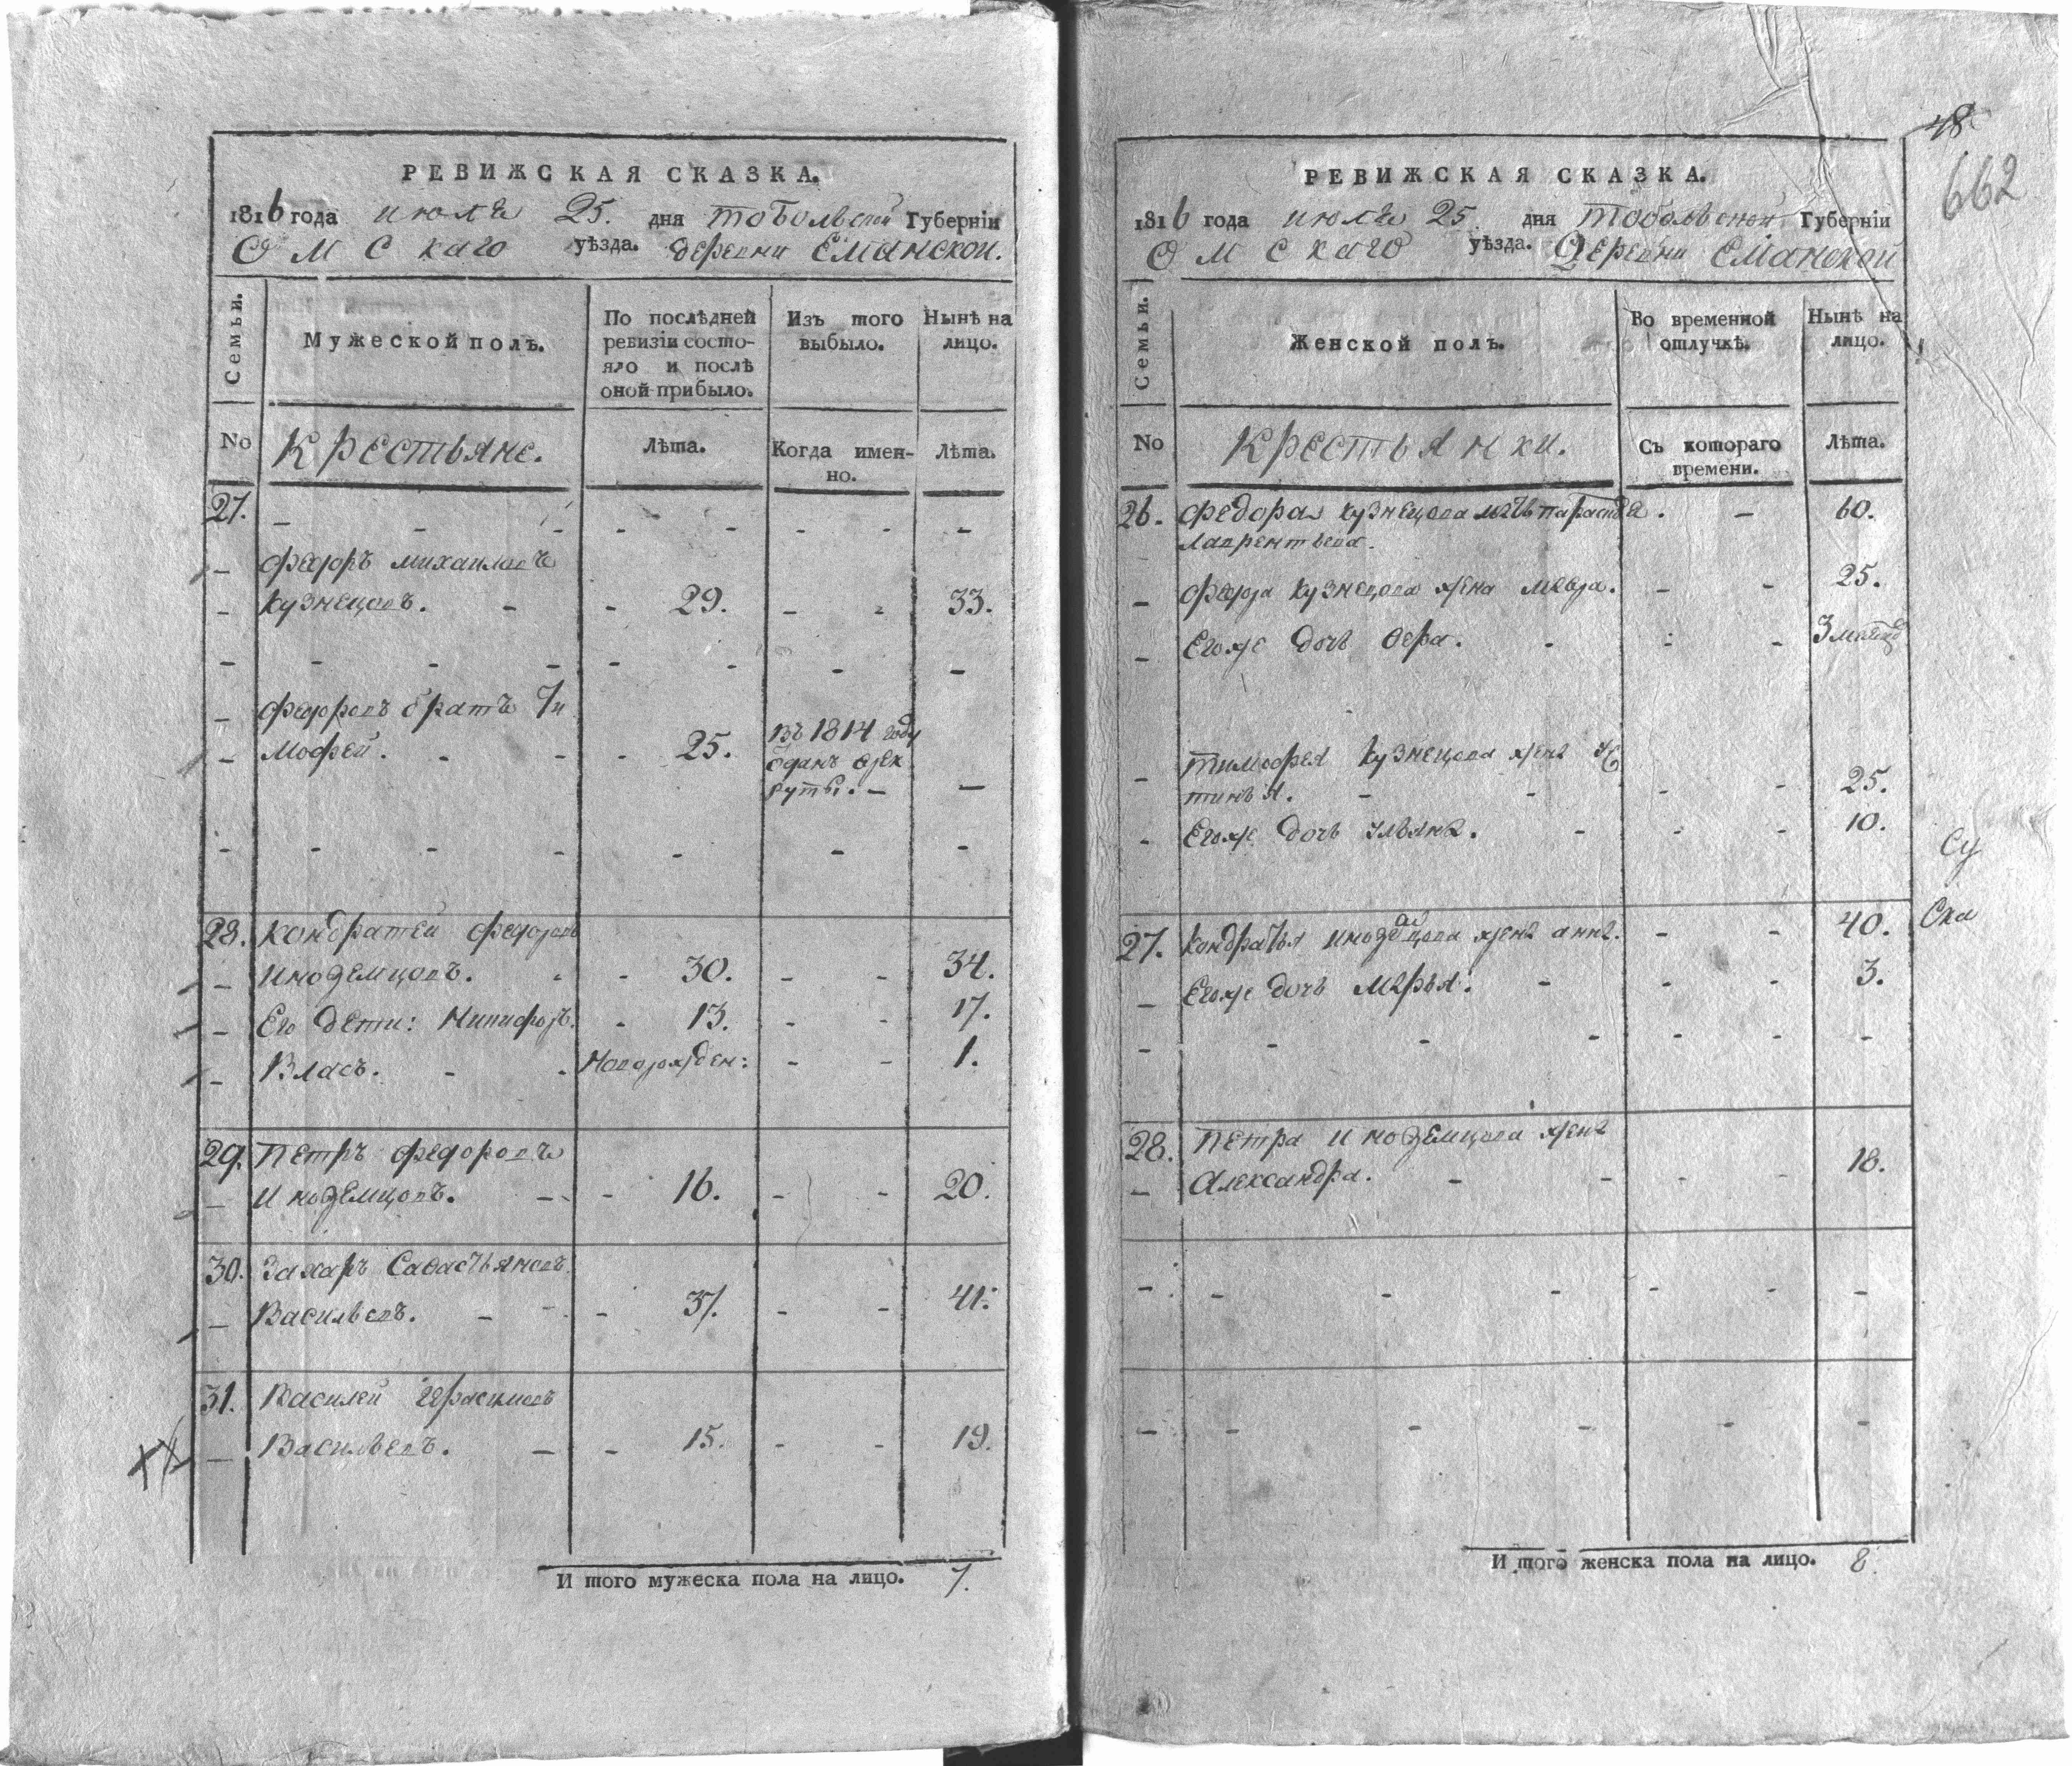 РЕВИЖСКАЯ СКАЗКА.
1816 года июля 25. дня тобольской Губерніи
Омскаго уѣзда. деревни Еманской.
Семьи.
Мужеской полъ.
По послѣдней ревизіи состо-
яло и послѣ
оной прибыло.
Изъ того
выбыло.
Нынѣ на
лицо.
No
Крестьяне.
Лѣта.
Когда имен-
но.
Лѣта.
27. - - - - - - - -
- федоръ михаиловъ
- кузнецовъ. - - 29. - - 33.
- - - - - - - -
- федоровъ братъ Ти
- мофей. - - - 25. въ 1814 году
одданъ врек
руты. - -
- - - - - - -
28. кондратей федоровъ
- иноземцовъ. - - 30. - - 34.
- Его дети: Никифоръ. - 13. - - 17.
- Власъ. - - Новорожден: - - 1.
29. Петръ федоровъ
- иноземцовъ. - - 16. - - 20.
30. Захаръ Савастьяновъ
- Васильевъ. - - - 37. - - 41.
31. Василей Герасимовъ
- Васильевъ. - - 15. - - 19.
И того мужеска пола на лицо. 7.
48
662
РЕВИЖСКАЯ СКАЗКА.
1816 года июля 25 дня тобольской Губерніи
Омскаго уѣзда. Деревни Еманской
Семьи.
Женской полъ.
Во временной
отлучкѣ.
Нынѣ на
лицо.
No
Крестьянки.
Съ котораго
времени.
Лѣта.
26. федора кузнецова мать параскева . - 60.
лаврентьева.
- федора кузнецова жена . - - 25.
- Егоже дочь вера. - - - 3
- тимофея кузнецова жена Ус
тинья. - - - - 25.
- Егоже дочь ульяна. - - - 10.
Су
27. кондратья иноземцова жена анна. - - 40.
Ска
- Егоже дочь марья. - - - 3.
- - - - - - -
28. петра иноземцова жена
- Александра. - - - - 18.
- - - - - - -
- - - - - -
И того женска пола на лицо. 8.